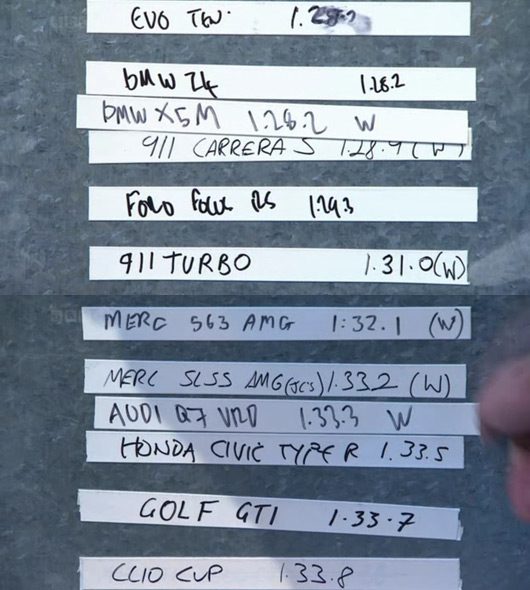 EVO TEN. 1.28.2
BMW Z4 1.28.2
BMW X5M 1.28.2 W
911 CARRERA S 1.28.9 (W)
FORD FOCUS RS 1.29.3
911 TURBO 1.31.0 (W)
MERC S63 AMG 1:32.1 (W)
MERC SL55 AMG 1.33.2 (W)
AUDI Q7 V12D 1.33.3 W
HONDA CIVIC TYPE R 1.33.5
GOLF GTI 1.33.7
CLIO CUP 1.33.8